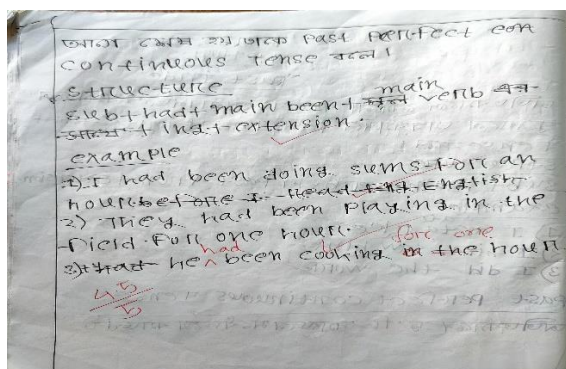 past perfect con
continuous Tense বলে।
structure
sub+had+ main been+ main verb
+ ing+extension.
example
1) I had been doing sums for an
hour before I read English.
2) They had been playing in the
field for one hour.
for one
3) that he had been cooking in the hour
4.5
5